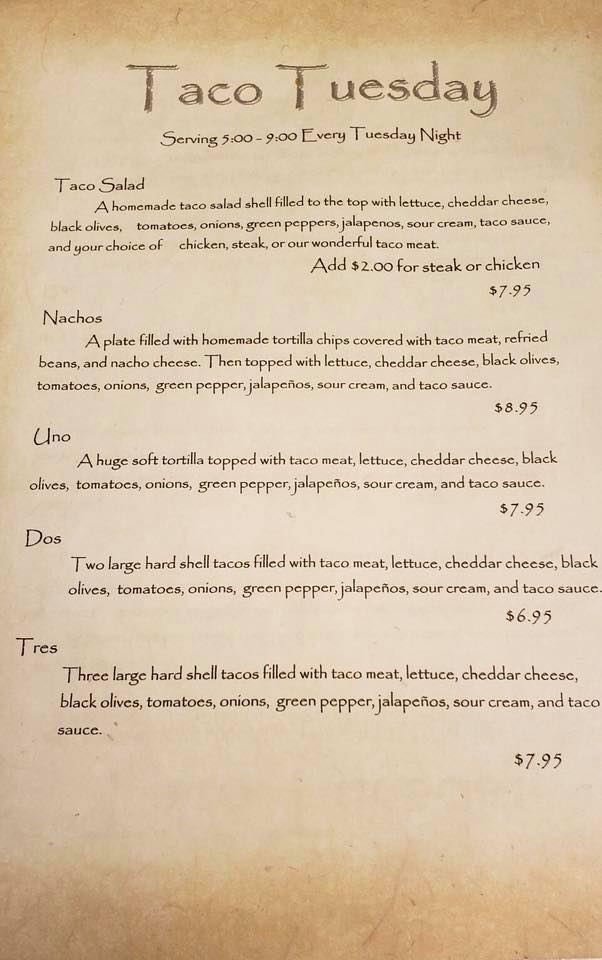 Taco Tuesday
Serving 5:00 - 9:00 Every Tuesday Night
Taco Salad
A homemade taco salad shell filled to the top with lettuce, cheddar cheese,
black olives, tomatoes, onions, green peppers, jalapenos, sour cream, taco sauce,
and your choice of chicken, steak, or our wonderful taco meat.
Add $2.00 for steak or chicken
$7.95
Nachos
A plate filled with homemade tortilla chips covered with taco meat, refried
beans, and nacho cheese. Then topped with lettuce, cheddar cheese, black olives,
tomatoes, onions, green pepper, jalapeños, sour cream, and taco sauce.
$8.95
Uno
A huge soft tortilla topped with taco meat, lettuce, cheddar cheese, black
olives, tomatoes, onions, green pepper, jalapeños, sour cream, and taco sauce.
$7.95
Dos
Two large hard shell tacos filled with taco meat, lettuce, cheddar cheese, black
olives, tomatoes, onions, green pepper, jalapeños, sour cream, and taco sauce.
$6.95
Tres
Three large hard shell tacos filled with taco meat, lettuce, cheddar cheese,
black olives, tomatoes, onions, green pepper, jalapeños, sour cream, and taco
sauce.
$7.95